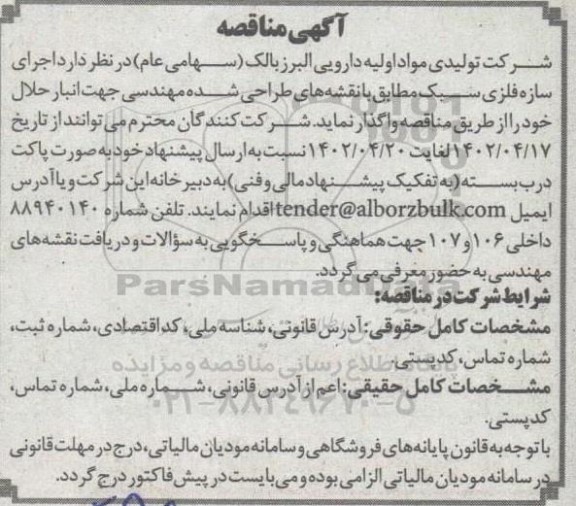 آگهی مناقصه
شرکت تولیدی مواد اولیه دارویی البرز بالک (سهامی عام) در نظر دارد اجرای
سازه فلزی سبک مطابق با نقشه‌های طراحی شده مهندسی جهت انبار حلال
خود را از طریق مناقصه واگذار نماید. شرکت کنندگان محترم می‌توانند از تاریخ
۱۴۰۲/۰۴/۱۷ لغایت ۱۴۰۲/۰۴/۲۰ نسبت به ارسال پیشنهاد خود به صورت پاکت
درب بسته (به تفکیک پیشنهاد مالی و فنی) به دبیرخانه این شرکت و یا آدرس
ایمیل tender@alborzbulk.com اقدام نمایند. تلفن شماره ۸۸۹۴۰۱۴۰
داخلی ۱۰۶ و ۱۰۷ جهت هماهنگی و پاسخگویی به سؤالات و دریافت نقشه‌های
مهندسی به حضور معرفی می گردد.
ParsNamadData
شرایط شرکت در مناقصه:
مشخصات کامل حقوقی: آدرس قانونی، شناسه ملی، کد اقتصادی، شماره ثبت،
شماره تماس، کدپستی.
پایگاه اطلاع رسانی مناقصه و مزایده
مشخصات کامل حقیقی: اعم از آدرس قانونی، شماره ملی، شماره تماس،
۰۲۱-۸۸۳۴۹۶۷۰-۵
کدپستی.
با توجه به قانون پایانه‌های فروشگاهی و سامانه مودیان مالیاتی، درج در مهلت قانونی
در سامانه مودیان مالیاتی الزامی بوده و می بایست در پیش فاکتور درج گردد.